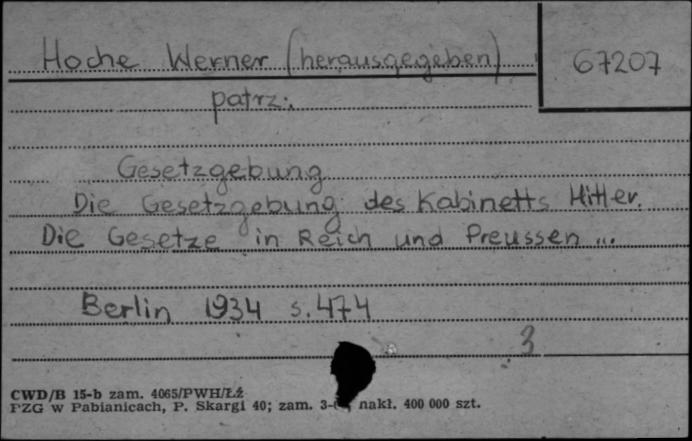 Hoche Werner (herausgegeben)
67207
patrz:
Gesetzgebung
Die Gesetzgebung des Kabinetts Hitler.
Die Gesetze in Reich und Preussen ...
Berlin 1934 s. 474
3
CWD/B 15-b zam. 4065/PWH/Łż
PZG w Pabianicach, P. Skargi 40; zam. nakł. 400 000 szt.